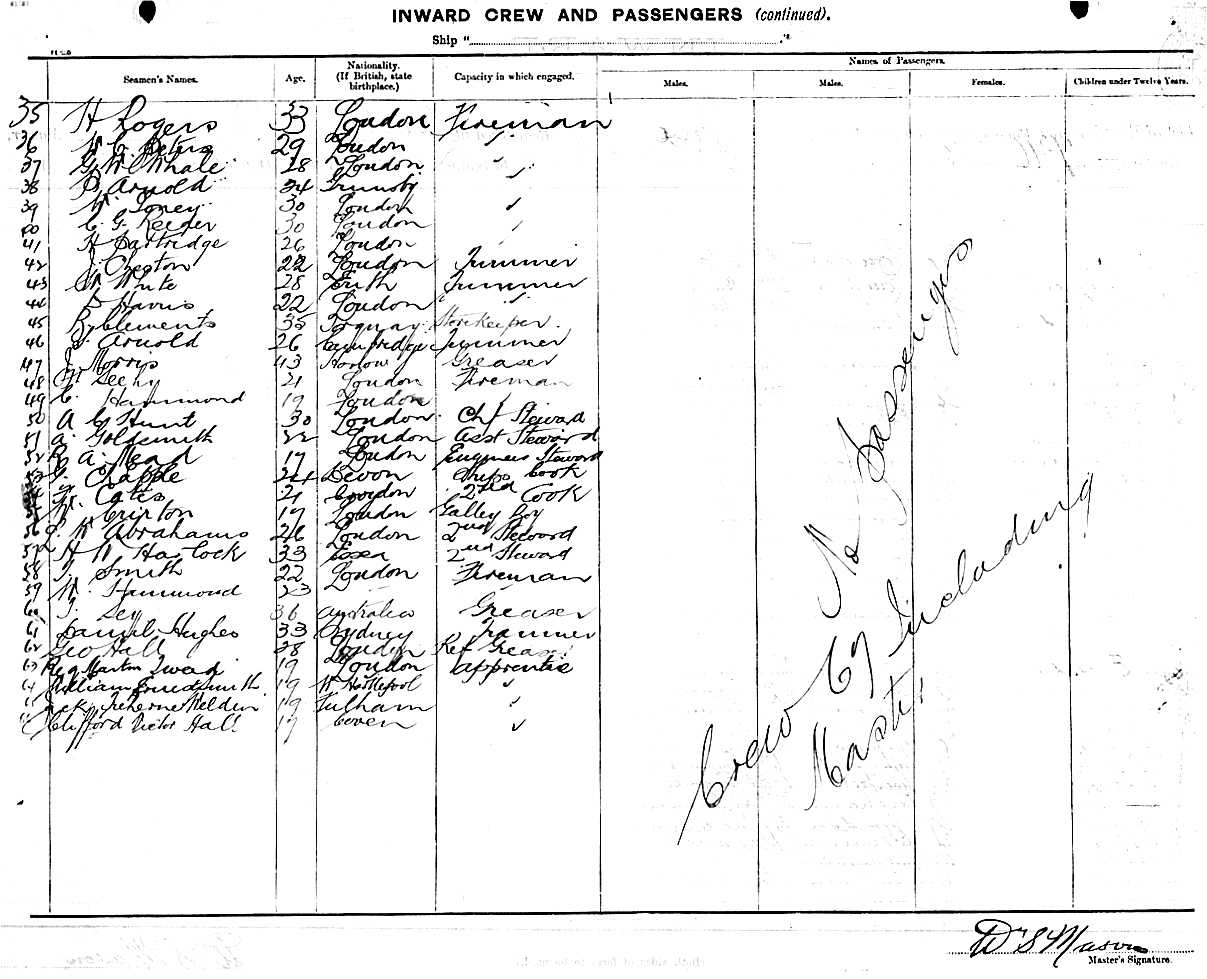 INWARD CREW AND PASSENGERS (continued).
Ship "
Seamen's Names. Age. Nationality. (If British, state birthplace.) Capacity in which engaged. Names of Passengers.
Males. Males. Females. Children under Twelve Years.
35 H Rogers 33 London Fireman
36 W G Peters 29 London "
37 G W Whale 28 London "
38 Arnold 34 Grimsby "
39 W. Toney 30 London "
40 C. G. Reeder 30 London "
41 H Partridge 26 London
42 J. Cheston 22 London Trimmer
43 W White 28 Erith Trimmer
44 Harris 22 London "
45 Clements 35 Torquay Storekeeper.
46 Arnold 26 Cambridge Trimmer
47 J Morris 43 Harlow Greaser
48 Leehy 21 London Fireman
49 C. Hammond 19 London "
50 A G Hunt 30 London Chf Steward
51 A. Goldsmith 22 London Asst Steward
52 A. Mead 17 London Engineers Steward
53 Chapple 24 Devon Ships Cook
54 Cates 21 Croydon 2nd Cook
55 W. Cripton 17 London Galley Boy
56 J. W Abrahams 26 London 2nd Steward
57 H W Haslock 33 Essex 2nd Steward
58 T. Smith 22 London Fireman
59 W. Hammond 23
60 T. 36 Australia Greaser
61 Daniel Hughes 33 Sydney Trimmer
62 Geo Hall 28 London Ref Greaser
63 Reg Martin 19 London apprentice
64 William Ernest Smith. 19 W Hartlepool "
Jack Treherne Welden 19 Fulham "
Clifford Victor Hall 17 "
No Passengers
Crew 69 Including
Master
W S Mason
Master's Signature.